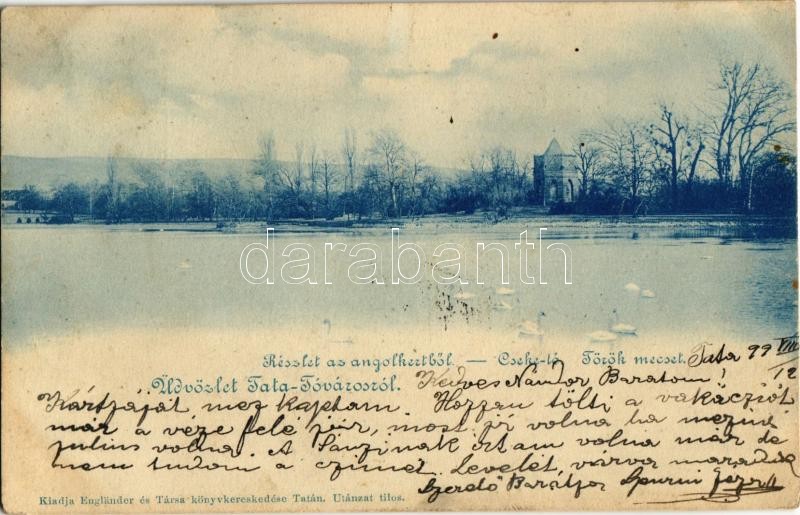 darabanth
Részlet az angolkertből. — Cseke-tó Török mecset.
Tata 99 VIII 12
Üdvözlet Tata-Tóvárosról.
Kedves Nándor Baratom!
Kártyáját meg kaptam. Hogyan tölti a vakácziót
már a veze felé jár, most jó volna ha megint
julius volna. A írtam volna már de
nem tudom a czimét. Levelét várva maradok
Szerető Barátja
Kiadja Engländer és Társa könyvkereskedése Tatán. Utánzat tilos.